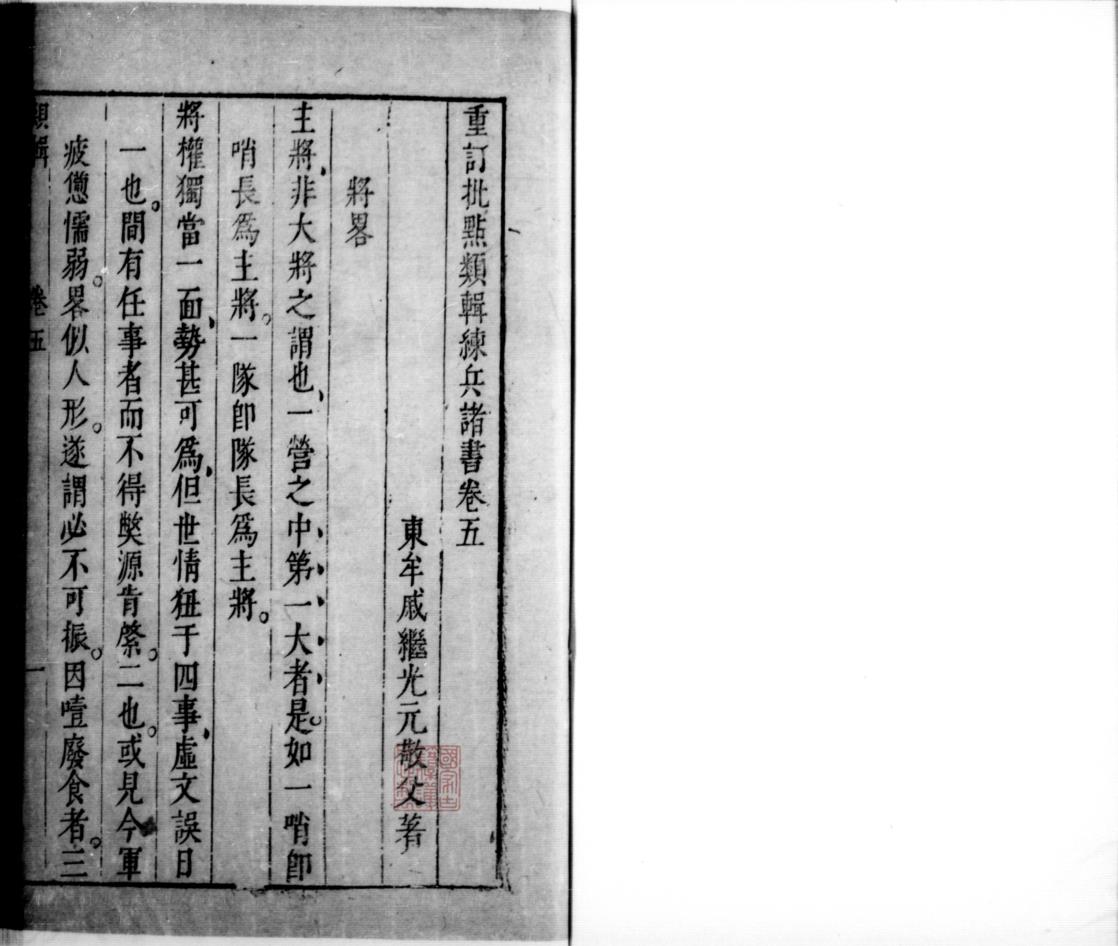 重訂批點類輯練兵諸書卷五
東牟戚繼光元敬父著
將畧
主將非大將之謂也一營之中第一大者是。如一哨卽
哨長爲主將。一隊卽隊長爲主將。
將權獨當一面勢甚可爲但世情狃于四事虛文誤日
一也。間有任事者而不得獘源肯綮。二也。或見今軍
疲憊懦弱。畧似人形。遂謂必不可振。因噎廢食者。三
類輯 卷五 一